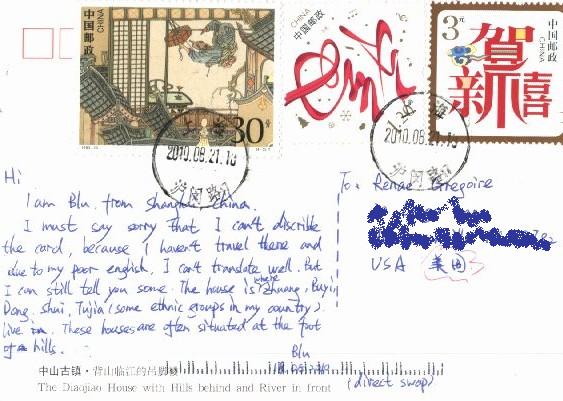 中国邮政
CHINA
30分
CHINA
中国邮政
3元
中国邮政
CHINA
贺新禧
上海
2010.08.21.18
沪闵路
2010.08.21.18
沪闵路
Hi
I am Blu. from Shanghai China.
I must say sorry that I can't discribe
the card, because I haven't travel there and
due to my poor english, I can't translate well. But
I can still tell you some. The house is where Zhuang, Buyi
Dong, Shui, Tujia (some ethnic groups in my country)
live in. These houses are often situated at the foot
of hills.
Blu
(direct swap)
To: Renae Gregoire
USA 美国
中山古镇·背山临江的吊脚楼
The Diaojiao House with Hills behind and River in front